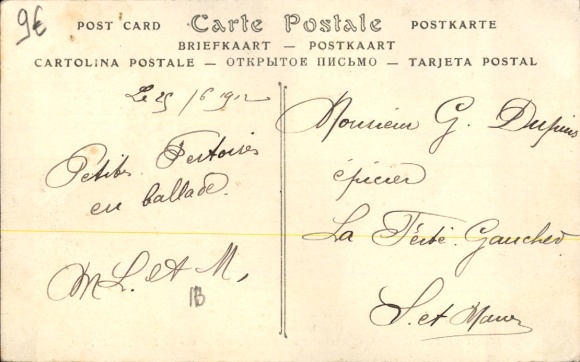 9€
POST CARD Carte Postale POSTKARTE
BRIEFKAART — POSTKAART
CARTOLINA POSTALE — ОТКРЫТОЕ ПИСЬМО — TARJETA POSTAL
Le 25/6 1912
Petites
en ballade.
M L. et M,
1B
Monsieur G.
épicier
La Ferté. Gaucher
S. et Marne